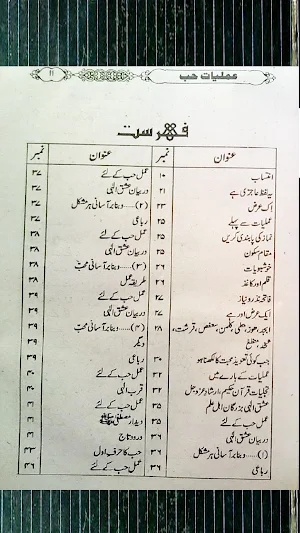 عملیات حب
۱۱
فہرست
عنوان نمبر
انتساب ۱۰
یہ لفظ عاجزی ہے ۲۱
اک عرض ۲۳
عملیات سے پہلے ۲۵
نماز کی پابندی کریں ۲۵
مقام سکون ۲۵
خوشبویات ۲۶
قلم اور کاغذ ۲۶
فاتحہ نذر و نیاز ۲۷
ایک عرض اور ہے ۲۷
ابجد، ہوز، حطی، کلمن، سعفص، قرشت، ۲۸
ثخذ، ضظغ
جب کوئی تعویذ محبت کا لکھنا ہو ۳۰
عملیات کے بارے میں ۳۲
تجلیات قرآن حکیم، ارشاد عزوجل ۳۴
عشق الٰہی بزرگان اہل علم ۳۵
عمل حب کے لئے ۳۵
در بیان عشق الٰہی ۳۶
(۱)..... و بنا بر آسانی ہر مشکل ۳۶
رباعی ۳۶
عنوان نمبر
عمل حب کے لئے ۳۷
در بیان عشق الٰہی ۳۷
(۲)..... و بنا بر آسانی ہر مشکل ۳۷
رباعی ۳۷
عمل حب کے لئے ۳۸
در بیان عشق الٰہی ۳۸
(۳)..... و بنا بر آسانی محبت ۳۸
طریقہ عمل ۳۸
عمل حب کے لئے ۳۹
در بیان عشق الٰہی ۳۹
(۴)..... و بنا بر آسانی محبت ۳۹
دیگر ۳۹
رباعی ۳۹
عمل حب کے لئے ۴۰
قرب الٰہی ۴۰
عمل حب کے لئے ۴۱
دیدار مصطفیٰ ۴۱
درود تاج ۴۱
حب کا حرف اول ۴۳
عمل حب کے لئے ۴۶